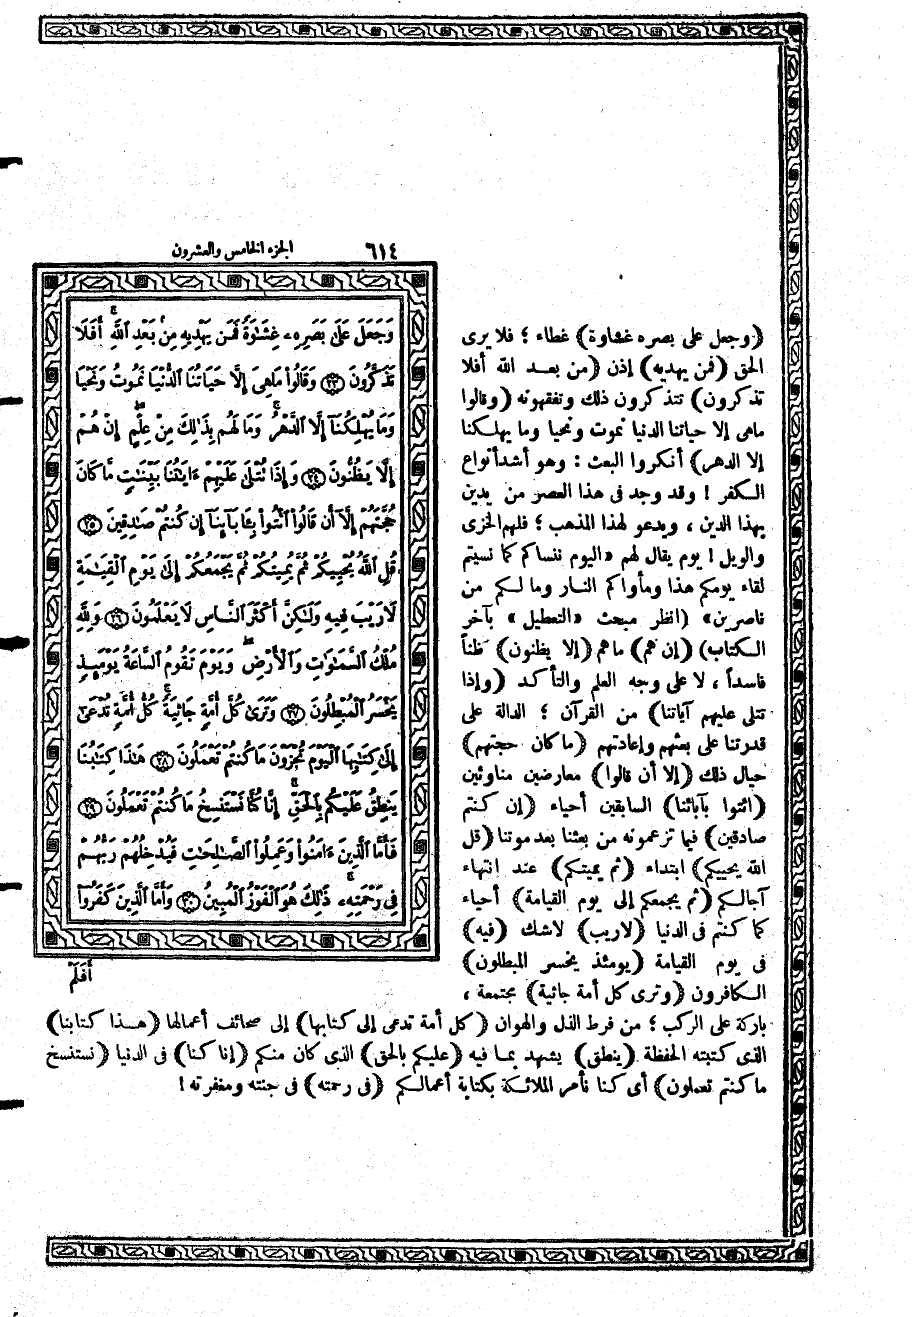 ٦١٤ الجزء الخامس والعشرون
وَجَعَلَ عَلَىٰ بَصَرِهِۦ غِشَـٰوَةً فَمَن يَهْدِيهِ مِنۢ بَعْدِ ٱللَّهِ ۚ أَفَلَا
تَذَكَّرُونَ ﴿٢٣﴾ وَقَالُوا۟ مَا هِىَ إِلَّا حَيَاتُنَا ٱلدُّنْيَا نَمُوتُ وَنَحْيَا
وَمَا يُهْلِكُنَآ إِلَّا ٱلدَّهْرُ ۚ وَمَا لَهُم بِذَٰلِكَ مِنْ عِلْمٍ ۖ إِنْ هُمْ
إِلَّا يَظُنُّونَ ﴿٢٤﴾ وَإِذَا تُتْلَىٰ عَلَيْهِمْ ءَايَـٰتُنَا بَيِّنَـٰتٍ مَّا كَانَ
حُجَّتَهُمْ إِلَّآ أَن قَالُوا۟ ٱئْتُوا۟ بِـَٔابَآئِنَآ إِن كُنتُمْ صَـٰدِقِينَ ﴿٢٥﴾
قُلِ ٱللَّهُ يُحْيِيكُمْ ثُمَّ يُمِيتُكُمْ ثُمَّ يَجْمَعُكُمْ إِلَىٰ يَوْمِ ٱلْقِيَـٰمَةِ
لَا رَيْبَ فِيهِ وَلَـٰكِنَّ أَكْثَرَ ٱلنَّاسِ لَا يَعْلَمُونَ ﴿٢٦﴾ وَلِلَّهِ
مُلْكُ ٱلسَّمَـٰوَٰتِ وَٱلْأَرْضِ ۚ وَيَوْمَ تَقُومُ ٱلسَّاعَةُ يَوْمَئِذٍ
يَخْسَرُ ٱلْمُبْطِلُونَ ﴿٢٧﴾ وَتَرَىٰ كُلَّ أُمَّةٍ جَاثِيَةً ۚ كُلُّ أُمَّةٍ تُدْعَىٰٓ
إِلَىٰ كِتَـٰبِهَا ٱلْيَوْمَ تُجْزَوْنَ مَا كُنتُمْ تَعْمَلُونَ ﴿٢٨﴾ هَـٰذَا كِتَـٰبُنَا
يَنطِقُ عَلَيْكُم بِٱلْحَقِّ ۚ إِنَّا كُنَّا نَسْتَنسِخُ مَا كُنتُمْ تَعْمَلُونَ ﴿٢٩﴾
فَأَمَّا ٱلَّذِينَ ءَامَنُوا۟ وَعَمِلُوا۟ ٱلصَّـٰلِحَـٰتِ فَيُدْخِلُهُمْ رَبُّهُمْ
فِى رَحْمَتِهِۦ ۚ ذَٰلِكَ هُوَ ٱلْفَوْزُ ٱلْمُبِينُ ﴿٣٠﴾ وَأَمَّا ٱلَّذِينَ كَفَرُوٓا۟
أَفَلَمْ
(وجعل على بصره غشاوة) غطاء ؛ فلا يرى
الحق (فمن يهديه) إذن (من بعد الله أفلا
تذكرون) تتذكرون ذلك وتفقهونه (وقالوا
ماهى إلا حياتنا الدنيا نموت ونحيا وما يهلكنا
إلا الدهر) أنكروا البعث : وهو أشد أنواع
الكفر ! وقد وجد فى هذا العصر من يدين
بهذا الدين ، ويدعو لهذا المذهب ؛ فلهم الخزى
والويل ! يوم يقال لهم «اليوم ننساكم كما نسيتم
لقاء يومكم هذا ومأواكم النار وما لكم من
ناصرين» (انظر مبحث «التعطيل» بآخر
الكتاب) (إن هم) ما هم (إلا يظنون) ظناً
فاسداً ، لا على وجه العلم والتأكد (وإذا
تتلى عليهم آياتنا) من القرآن ؛ الدالة على
قدرتنا على بعثهم وإعادتهم (ما كان حجتهم)
حيال ذلك (إلا أن قالوا) معارضين مناوئين
(ائتوا بآبائنا) السابقين أحياء (إن كنتم
صادقين) فيما تزعمونه من بعثنا بعد موتنا (قل
الله يحييكم) ابتداء (ثم يميتكم) عند انتهاء
آجالكم (ثم يجمعكم إلى يوم القيامة) أحياء
كما كنتم فى الدنيا (لاريب) لاشك (فيه)
فى يوم القيامة (يومئذ يخسر المبطلون)
الكافرون (وترى كل أمة جاثية) مجتمعة ،
باركة على الركب ؛ من فرط الذل والهوان (كل أمة تدعى إلى كتابها) إلى صحائف أعمالها (هذا كتابنا)
الذى كتبته الحفظة (ينطق) يشهد بما فيه (عليكم بالحق) الذى كان منكم (إنا كنا) فى الدنيا (نستنسخ
ما كنتم تعملون) أى كنا نأمر الملائكة بكتابة أعمالكم (فى رحمته) فى جنته ومغفرته !